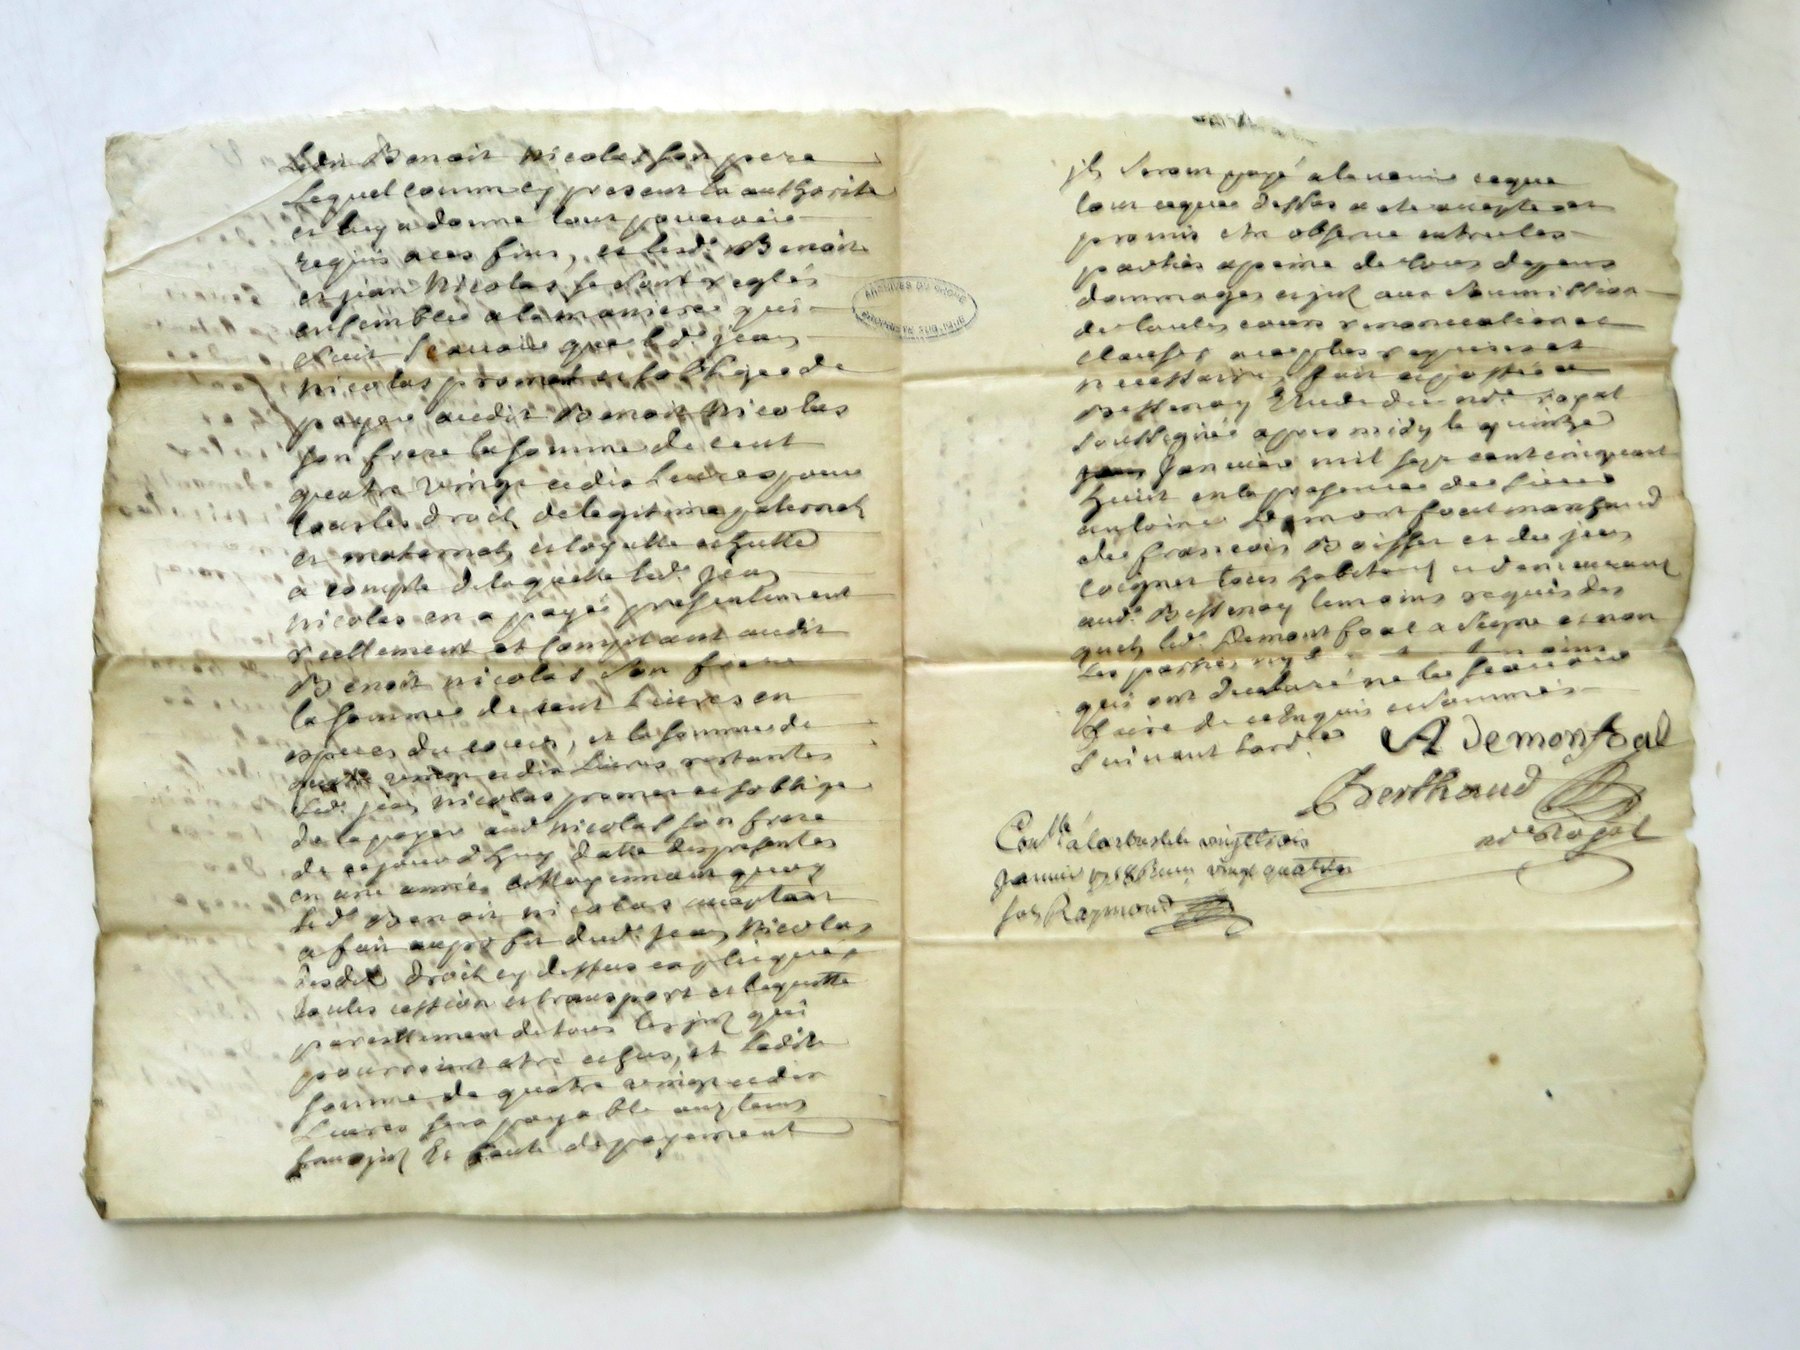 Ledit Benoit Nicolas son pere
Lequel comme cy present la authorité
et luy a donné tout pouvoir
requis a ces fins, et lesd. Benoit
et jean Nicolas se sont reglés
ensemble a la maniere qui
suit scavoir que led. jean
Nicolas promet et soblige de
payer audit Benoit Nicolas
son frere la somme de cent
quatre vingt et dix Livres pour
tous les droits de legitime paternels
et maternels et
a compte de laquelle led. jean
Nicolas en a payé presentement
reellement et comptant audit
Benoit nicolas son frere
la somme de cent Livres en
especes du cours, et la somme de
quatre vingt et dix Livres restantes
led. jean Nicolas promet et soblige
de la payer aud. Nicolas son frere
de ce jourdhuy datte des presentes
en une année moyennant quoy
led. Benoit nicolas acceptant
a fait au profit dud. jean Nicolas
desdits droits cy dessus expliqués
toutes cession et transport et le quitte
pareillement de tous les qui
pourroient etre echus, et ladite
somme de quatre vingt et dix
Livres sera payable aux tems
Et faute de payement
ils seront payé a lavenir ce que
tout ce que dessus a eté accepté et
promis etre observé entre les
parties a peine de tous depens
dommages aux soumission
de toutes cours renonciation et
clauses requises et
necessaires, fait et passé a
Bessenay Etude du nore. royal
soussigné apres midy le quinze
janvier mil sept cent cinquante
huit en la presence des sieurs
antoine Demontfout marchand
de francois Boisset et de jean
tous habitants et demeurant
aud. Bessenay temoins requis des
quels led. Demontfoal a signé et non
les parties ny
qui ont declaré ne le scavoir
faire de ce enquis et sommés
suivant lord.ce
A Demonfoal
Berthaud
nre Royal
Conlle á larbresle le vingttrois
janvier 1758 Reçu vingt quatre
Raymond
ARCHIVES DU RHONE